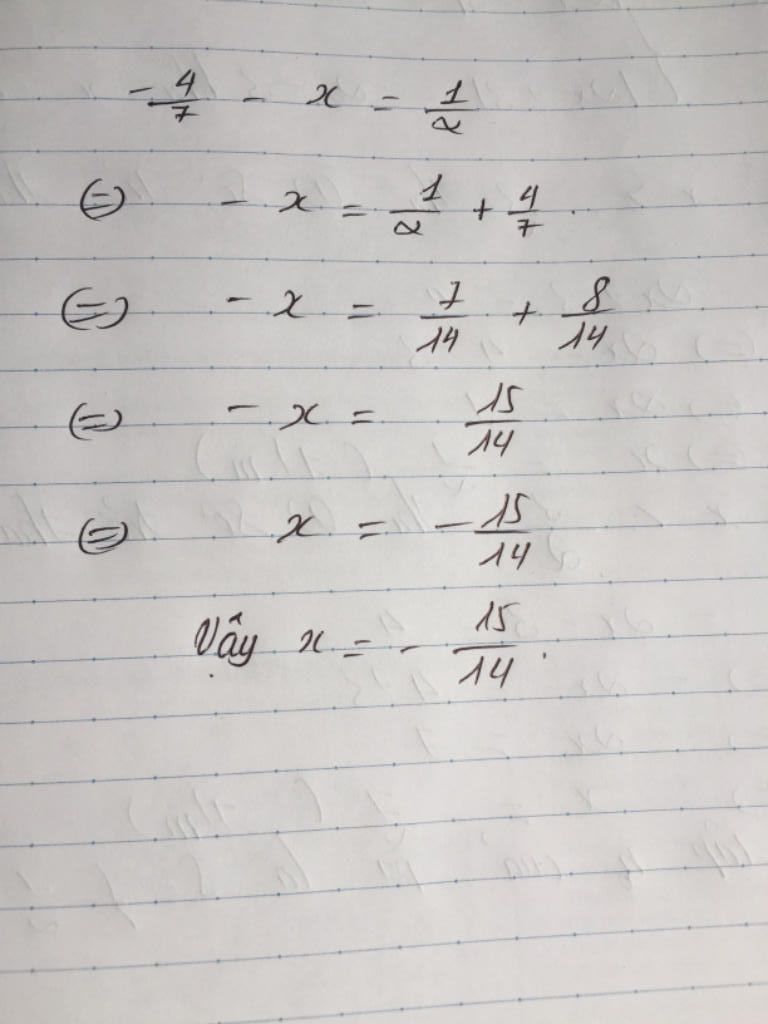 -4/7 - x = 1/2
⇔ - x = 1/2 + 4/7 .
⇔ - x = 7/14 + 8/14
⇔ - x = 15/14
⇔ x = - 15/14
Vậy x = - 15/14 .